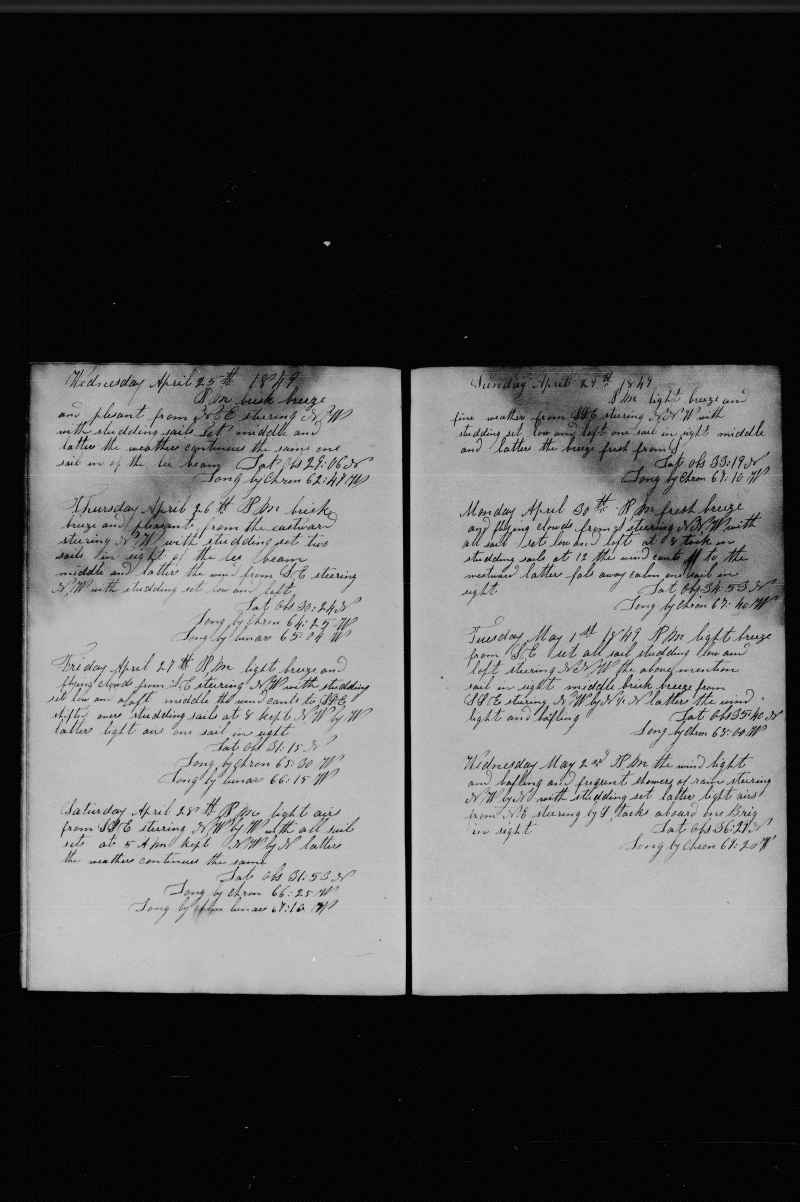 Wednesday April 25th 1849
P.M. brisk breeze
and plesant from N.E steering N.W
with studding sails set middle and
latter the weather continues the same one
sail in of the lee beam Lat Obs 29:06 N
Long by Chron 62:48 W
Thursday April 26th P.M. brisk
breeze and pleasant from the eastward
steering N.W with studding set two
sails in sight of the lee beam
middle and latter the wind from S.E steering
N.W with studding set low an left
Lat Obs 30:24 N
Long by Chron 64:25 W
Long by lunar 65:04 W
Friday April 27th P.M. light breeze and
flying clouds from S.E steering N.W with studding
set low an aloft meddle the wind cants to SSE
shifted over studding sails at 8 kept N.W by W
latter light airs one sail in sight
Lat Obs 31:15 N
Long by Chron 65:30 W
Long by lunar 66:15 W
Saturday April 28th P.M. light airs
from SSE steering N.W by W with all sail
sett at 5 A.M kept N.W by N latter
the weather continues the same
Lat Obs 31:53 N
Long by Chron 66:25 W
Long by lunar 67:10 W
Sunday April 29th 1849
P.M. light breeze and
fine weather from SSE steering N.N.W with
studding set low and loft one sail in sight middle
and latter the breeze fresh from S
Lat obs 33:19 N
Long by Chron 67:10 W
Monday April 30th P.M fresh breeze
and flying clouds from S steering N.N.W with
all sail set low and loft at 8 took in
studding sails at 12 the wind cants to the
westward latter fals away calm one sail in
sight Lat Obs 34:53 N
Long by Chron 67:40 W
Tuesday May 1st 1849 P.M light breeze
from S.E set all sail studding low and
loft steering N.N.W the above mention
sail in sight middle brisk breeze from
SSE steering N.W by N & N latter the wind
light and bafling Lat Obs 35:40 N
Long by Chron 68:04 W
Wednesday May 2nd P.M the wind light
and bafling and frequent showers of rain steering
N.W by N with studding set latter light airs
from N.E steering by S. tacks aboard one Brig
in sight Lat Obs 36:27 N
Long by Chron 68:20 W